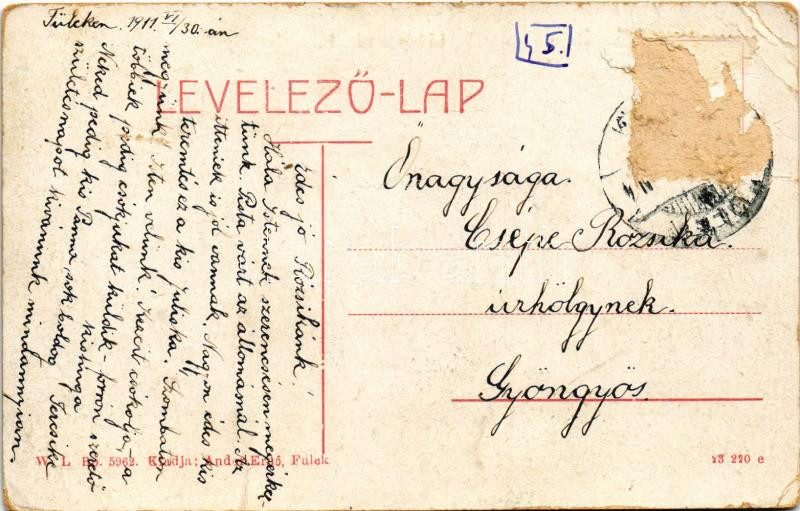 Füleken. 1911. VI/30.-án
45.
LEVELEZŐ-LAP
édes jó Rózsikánk
Hála Istennek szerencsésen megérkez-
tünk. Pista várt az állomásnál. Az
itteniek is jól vannak. Nagyon édes kis
teremtés ez a kis Juliska. Szombaton
megyünk Isten velünk. Ancit csókolja, a
többiek pedig csókjukat küldik - forrón szerető
Neked pedig kis Panna, sok boldog
születésnapot kívánunk mindannyian.
Őnagysága
Csépe Rózsika.
úrhölgynek.
Gyöngyös.
W. L. Bp. 5962. Kiadja: Andor Ernő, Fülek
13 220 e